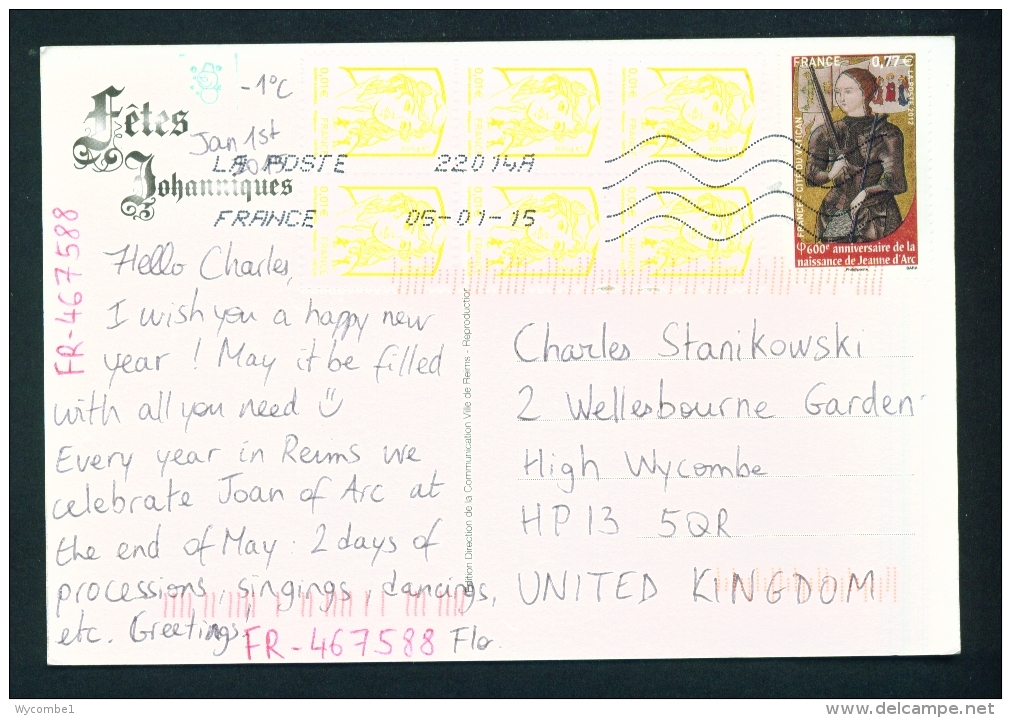 Fêtes
Johanniques
-1°C
Jan 1st
2015
LA POSTE 22014A
FRANCE 05-01-15
0,01€ FRANCE
0,01€ FRANCE
0,01€ FRANCE
0,01€ FRANCE
0,01€ FRANCE
0,01€ FRANCE
FRANCE 0,77€
LA POSTE 2012
FRANCE - CITÉ DU VATICAN
600e anniversaire de la
naissance de Jeanne d'Arc
FR-467588
Hello Charles,
I wish you a happy new
year ! May it be filled
with all you need
Every year in Reims we
celebrate Joan of Arc at
the end of May. 2 days of
processions, singings, dancings,
etc. Greetings!
FR-467588 Flo.
Edition Direction de la Communication Ville de Reims - Reproduction
Charles Stanikowski
2 Wellesbourne Garden
High Wycombe
HP13 5QR
UNITED KINGDOM
Wycombe1
www.delcampe.net